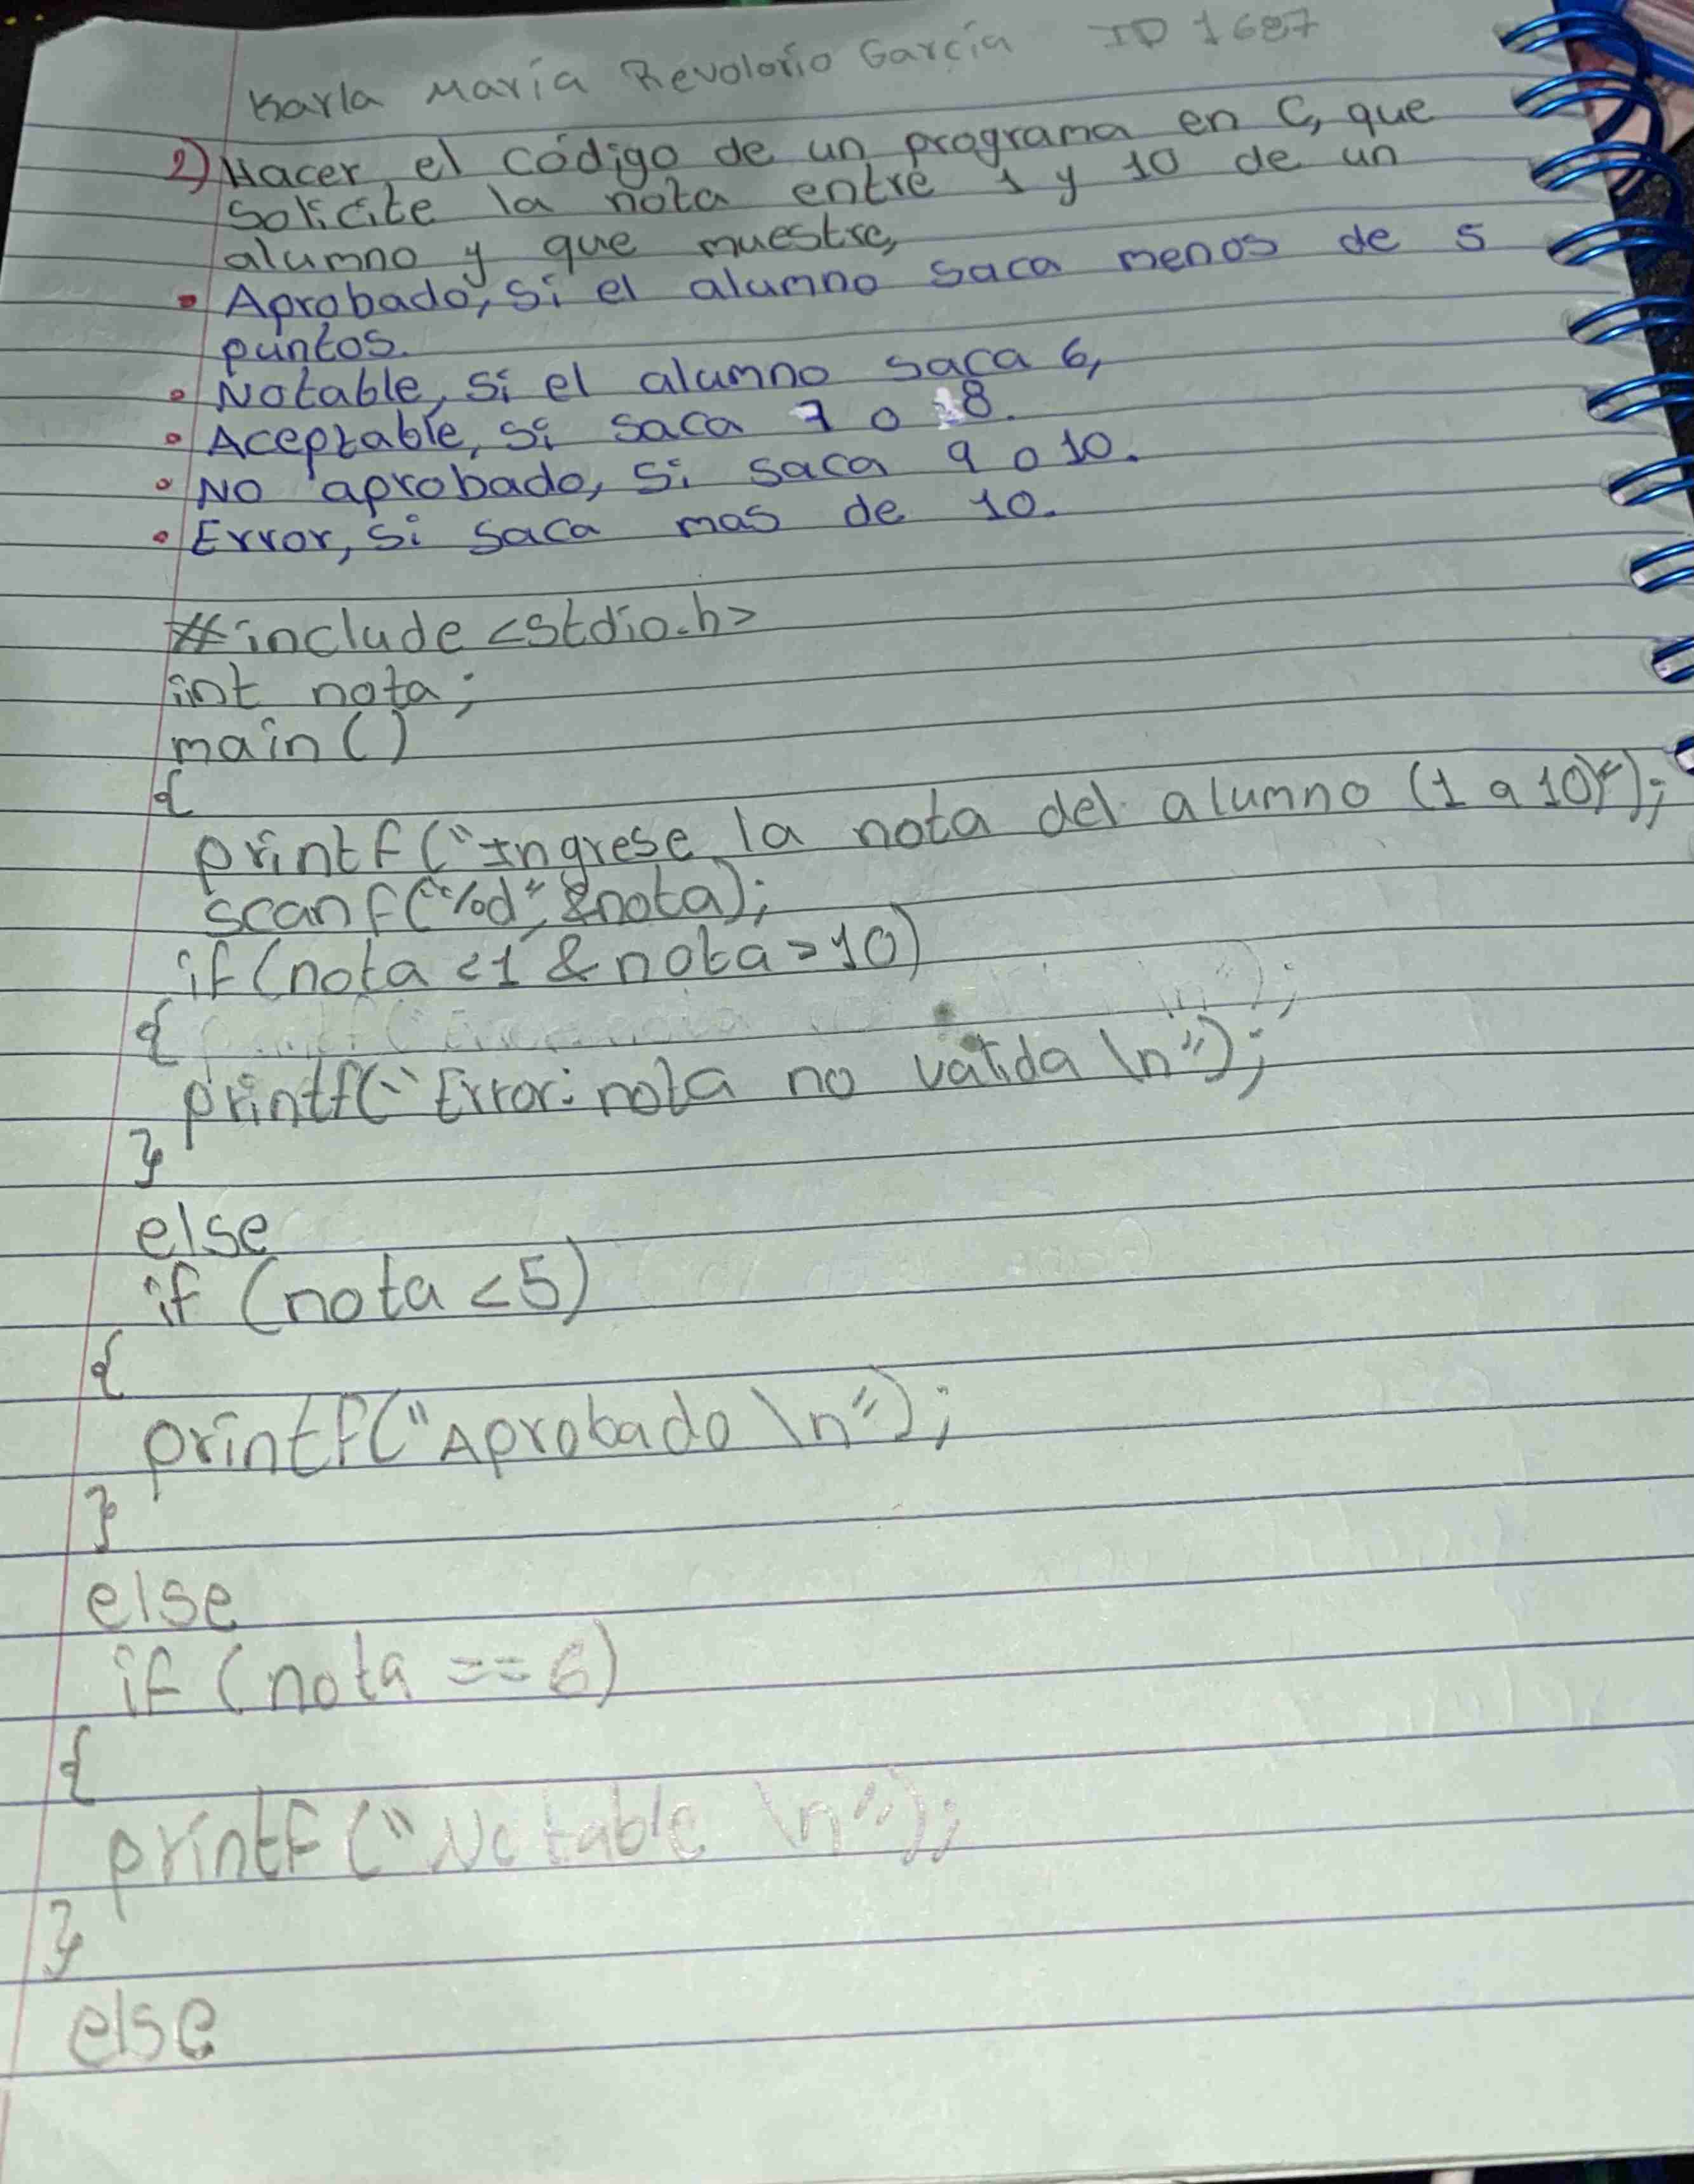 Karla María Revolorio García ID 1687
2) Hacer el código de un programa en C, que
solicite la nota entre 1 y 10 de un
alumno y que muestre,
• Aprobado, si el alumno saca menos de 5
puntos.
• Notable, si el alumno saca 6,
• Aceptable, si saca 7 o 8.
• No aprobado, si saca 9 o 10.
• Error, si saca mas de 10.
#include <stdio.h>
int nota;
main()
{
printf("Ingrese la nota del alumno (1 a 10)");
scanf("%d", &nota);
if(nota <1 & nota >10)
{
printf("Error: nota no valida \n");
}
else
if (nota <5)
{
printf("Aprobado \n");
}
else
if (nota ==6)
{
printf("Notable \n");
}
else